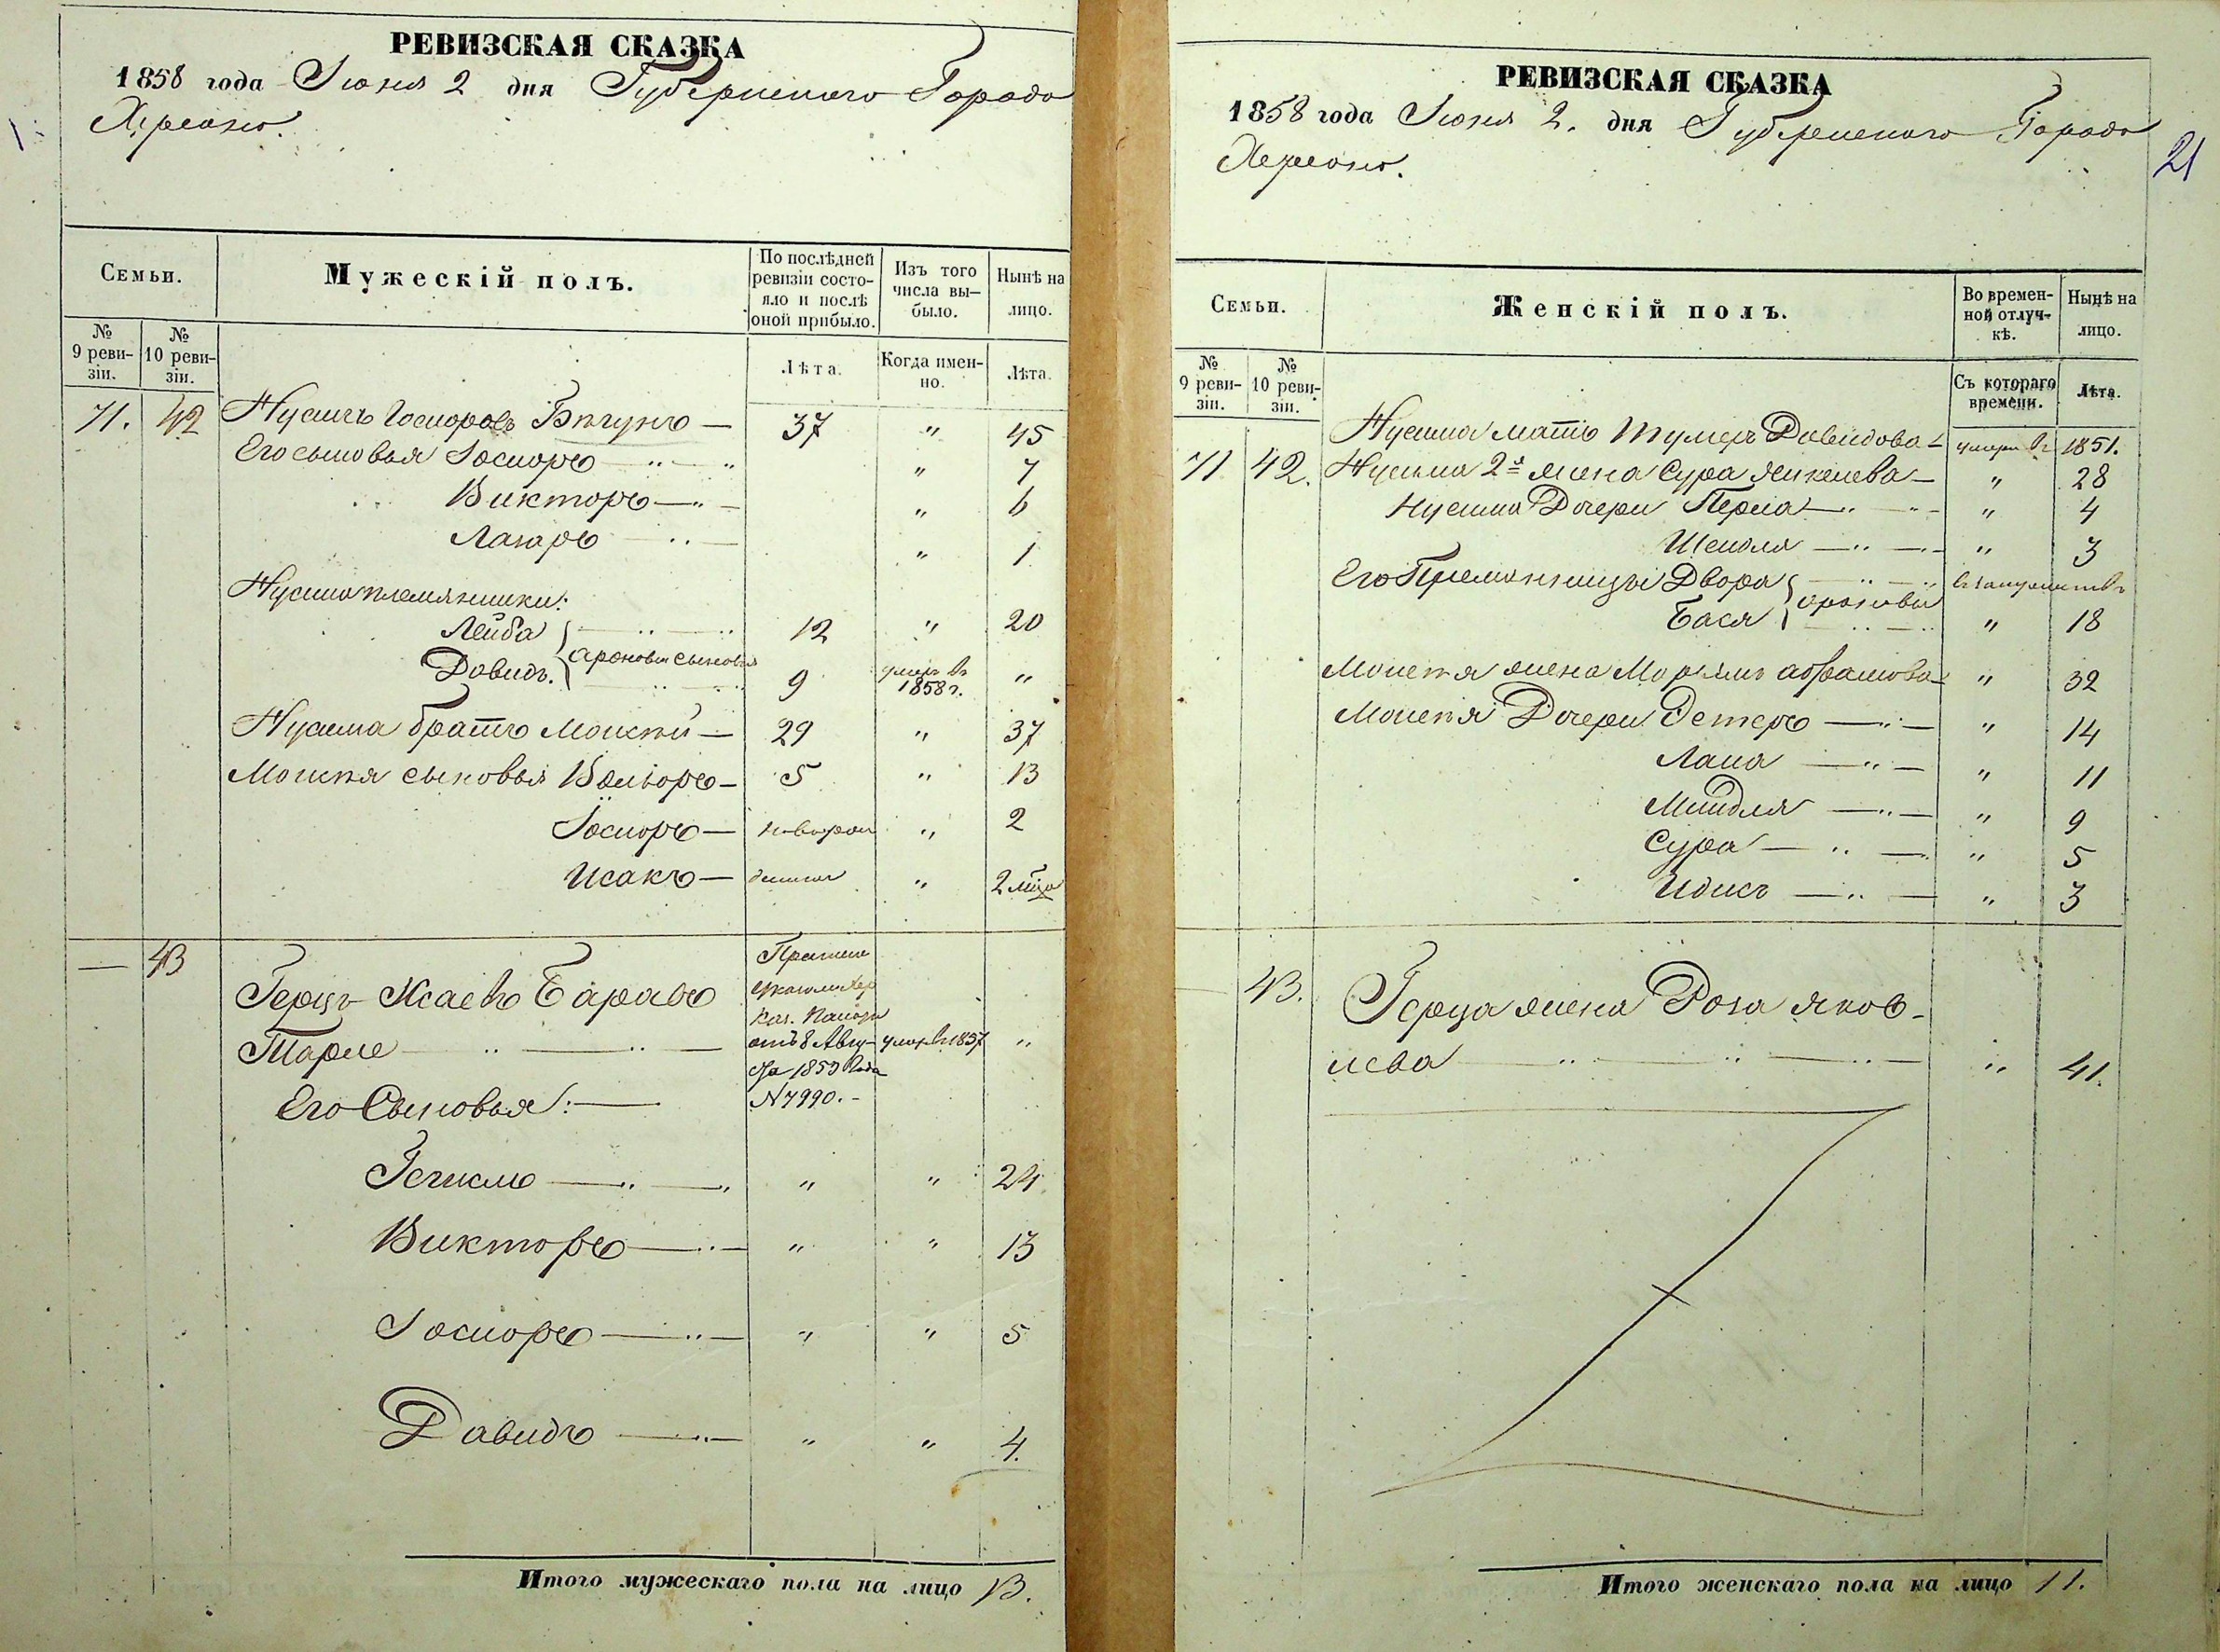 РЕВИЗСКАЯ СКАЗКА
1858 года Июня 2 дня Губернскаго Города
Херсона.
Семьи.
Мужескій полъ.
По послѣдней ревизіи состояло и послѣ оной прибыло.
Изъ того числа выбыло.
Нынѣ на лицо.
№ 9 ревизіи.
№ 10 ревизіи.
Лѣта.
Когда именно.
Лѣта.
71. 42 Нусимъ Іосиоровъ — 37 " 45
Его сыновья Іосиоръ " 7
Викторъ — " 6
Лазарь " 1
Нусима племянники:
Лейба 12 " 20
Ароновы сыновья
Давидъ. 9 умеръ въ 1858 г. "
Нусима братъ Моисей — 29 " 37
Моисея сыновья — 5 " 13
Іосиоръ — " 2
Исакъ — " 2 м-ца
— 43 Герцъ
умеръ въ 1857 "
отъ 8 Авгу-
ста 1853 Года
N 7990. -
Его Сыновья: —
" " 24
Викторъ — " " 13
Іосиоръ — " " 5
Давидъ — " " 4.
Итого мужескаго пола на лицо 13.
21
РЕВИЗСКАЯ СКАЗКА
1858 года Июня 2. дня Губернскаго Города
Херсона.
Семьи.
Женскій полъ.
Во временной отлучкѣ.
Нынѣ на лицо.
№ 9 ревизіи.
№ 10 ревизіи.
Съ котораго времени.
Лѣта.
Нусима мать Давидова — умерла въ 1851.
71 42. Нусима 2я жена Сура — " 28
Нусима Дочери Перла " 4
Шейдля — " 3
Его Племянницы Двора въ замужествѣ
Ароновы
Бася " 18
Моисея жена Марьямъ Абрамова — " 32
Моисея Дочери Эстеръ — " 14
— " 11
Миндля — " 9
Сура — " 5
— " 3
43. Герца жена Роза Яков-
лева " 41.
Итого женскаго пола на лицо 11.